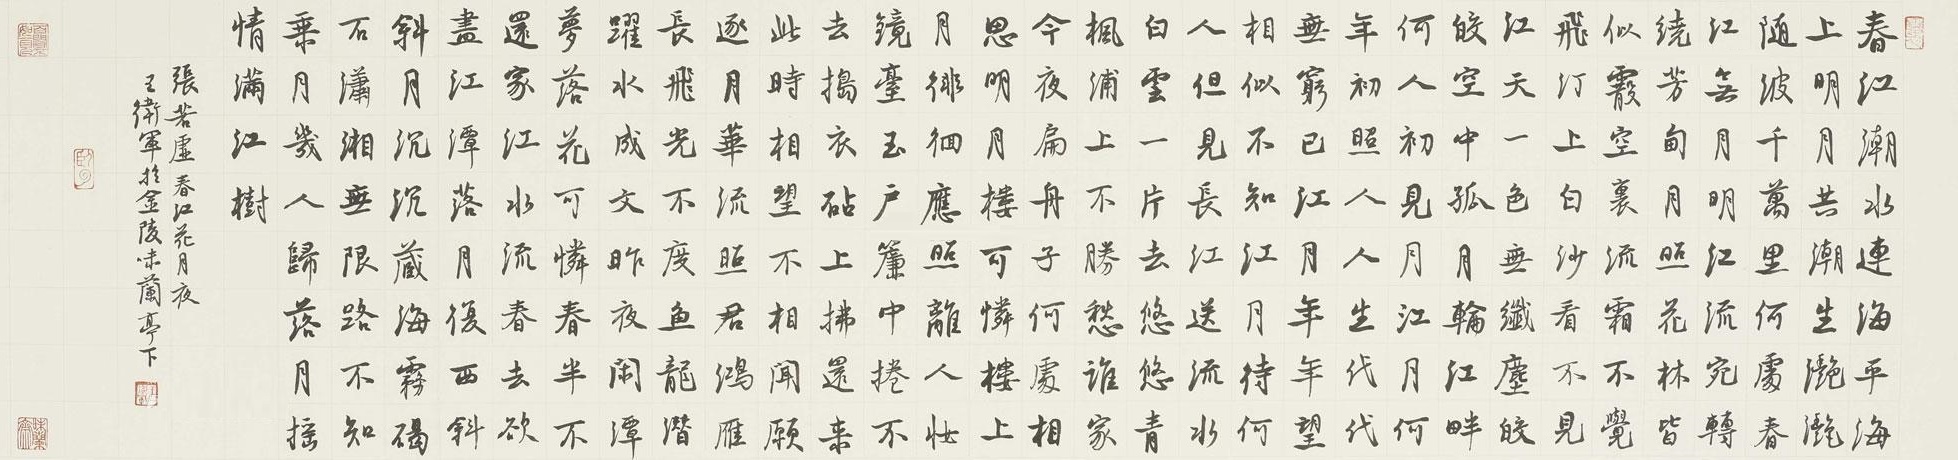 春江潮水連海平海
上明月共潮生灔灔
随波千萬里何處春
江無月明江流宛轉
繞芳甸月照花林皆
似霰空裏流霜不覺
飛汀上白沙看不見
江天一色無纖塵皎
皎空中孤月輪江畔
何人初見月江月何
年初照人人生代代
無窮已江月年年望
相似不知江月待何
人但見長江送流水
白雲一片去悠悠青
楓浦上不勝愁誰家
今夜扁舟子何處相
思明月樓可憐樓上
月徘徊應照離人妝
鏡臺玉户簾中捲不
去搗衣砧上拂還来
此時相望不相聞願
逐月華流照君鴻雁
長飛光不度魚龍潛
躍水成文昨夜閑潭
夢落花可憐春半不
還家江水流春去欲
盡江潭落月復西斜
斜月沉沉藏海霧碣
石瀟湘無限路不知
乘月幾人歸落月摇
情滿江樹
張若虛春江花月夜
王衛軍於金陵味蘭亭下